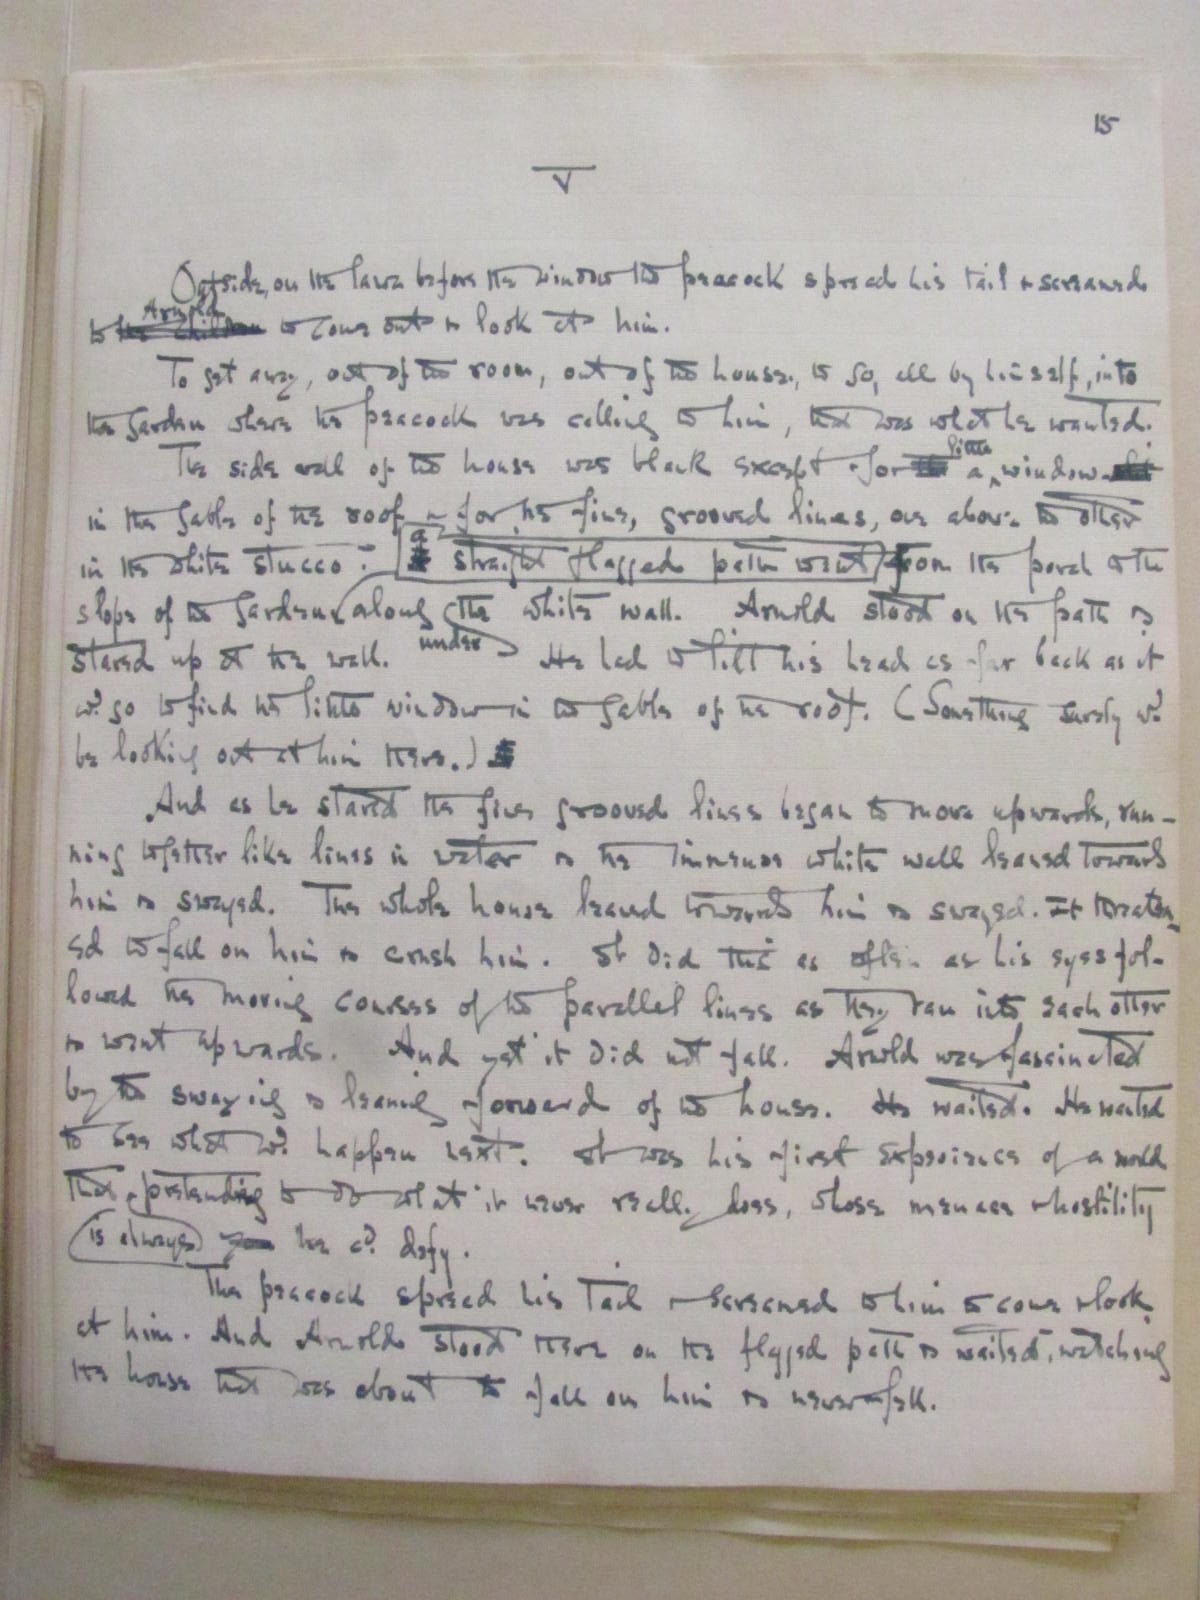 15
V
Outside, on the lawn before the window the peacock spread his tail & screamed
Arnold
to the children to come out & look at him.
To get away, out of the room, out of the house, to go, all by himself, into
the garden where the peacock was calling to him, that was what he wanted.
little
The side wall of the house was blank except for a window
in the gable of the roof & for the fine, grooved lines, one above the other
a
in the white stucco. straight flagged path went from the porch to the
slope of the garden along the white wall. Arnold stood on the path &
under
stared up at the wall. He had to tilt his head as far back as it
wd. go to find the little window in the gable of the roof. (Something surely wd.
be looking out at him there.)
And as he stared the fine grooved lines began to move upwards, run-
ning together like lines in water & the immense white wall leaned towards
him & swayed. The whole house leaned towards him & swayed. It threaten-
ed to fall on him & crush him. It did this as often as his eyes fol-
lowed the moving courses of the parallel lines as they ran into each other
& went upwards. And yet it did not fall. Arnold was fascinated
by the swaying & leaning forward of the house. He waited. He waited
to see what wd. happen next. It was his first experience of a world
that pretending to do what it never really does, whose menace & hostility
is always he cd. defy.
The peacock spread his tail & screamed to him to come & look
at him. And Arnold stood there on the flagged path & waited, watching
the house that was about to fall on him & never fell.